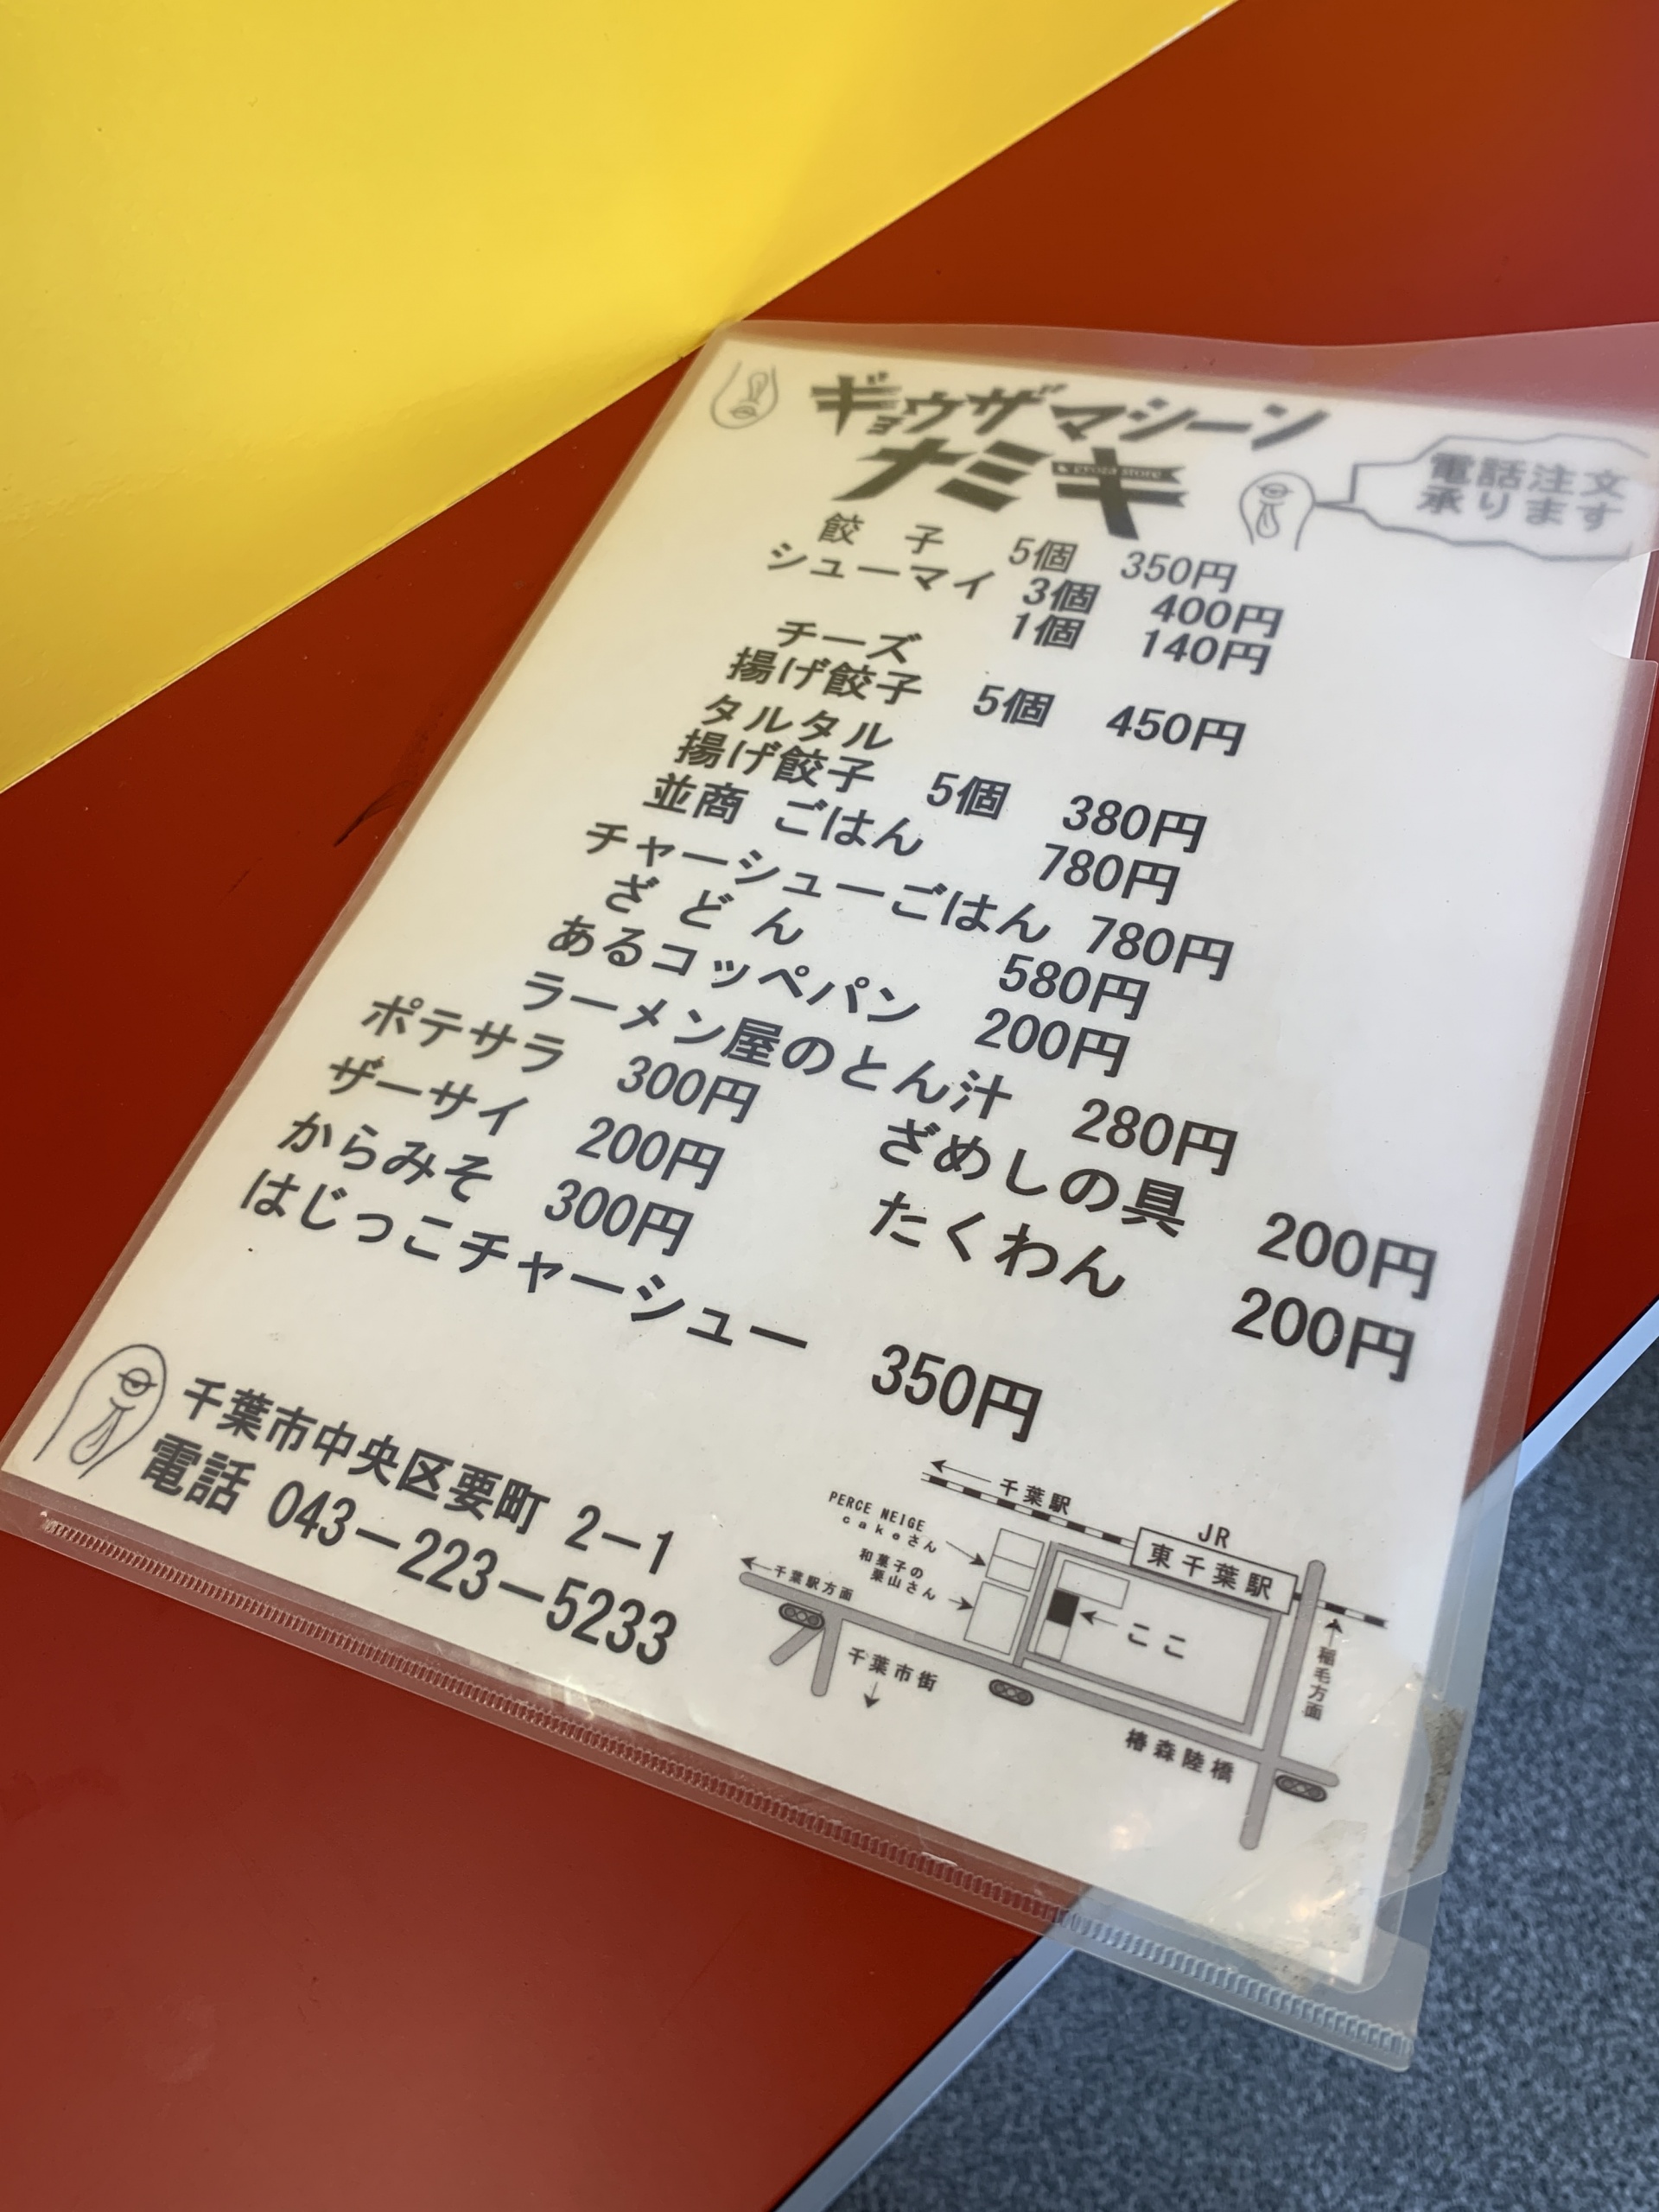 ギョウザマシーン
ナミキ
電話注文
承ります
餃子 5個 350円
シューマイ 3個 400円
1個 140円
チーズ
揚げ餃子 5個 450円
タルタル
揚げ餃子 5個 380円
並商 ごはん 780円
チャーシューごはん 780円
ざどん 580円
あるコッペパン 200円
ラーメン屋のとん汁 280円
ポテサラ 300円
ざめしの具 200円
ザーサイ 200円
たくわん 200円
からみそ 300円
はじっこチャーシュー 350円
千葉市中央区要町 2-1
電話 043-223-5233
千葉駅
PERCE NEIGE
cakeさん
JR
東千葉駅
和菓子の
栗山さん
千葉駅方面
ここ
千葉市街
稲毛方面
椿森陸橋